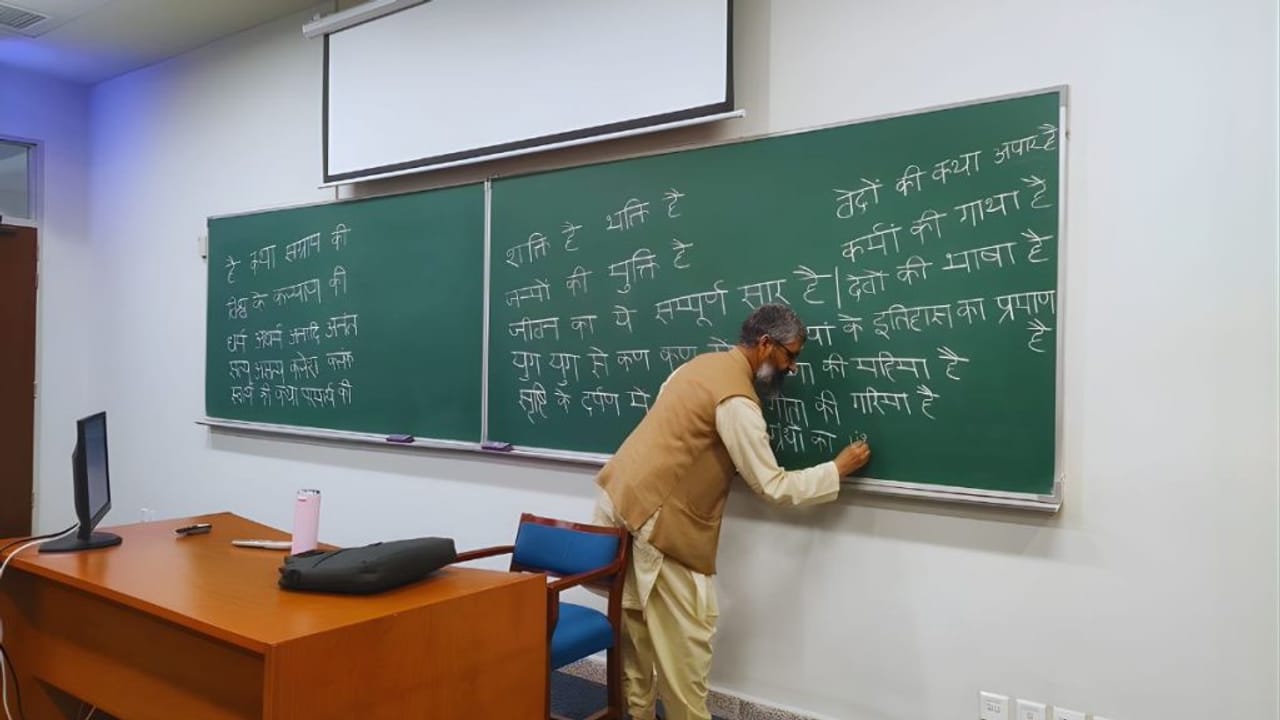 है कथा संग्राम की
विश्व के कल्याण की
धर्म अधर्म अनादि अनंत
सत्य असत्य
स्वार्थ की कथा परमार्थ की
शक्ति है भक्ति है
जन्मों की मुक्ति है
जीवन का ये सम्पूर्ण सार है
युग युग से कण कण
सृष्टि के दर्पण से
वेदों की कथा अपार है
कर्मों की गाथा है
देवों की भाषा है
के इतिहास का प्रमाण है
की महिमा है
गीता की गरिमा है
ग्रंथों का